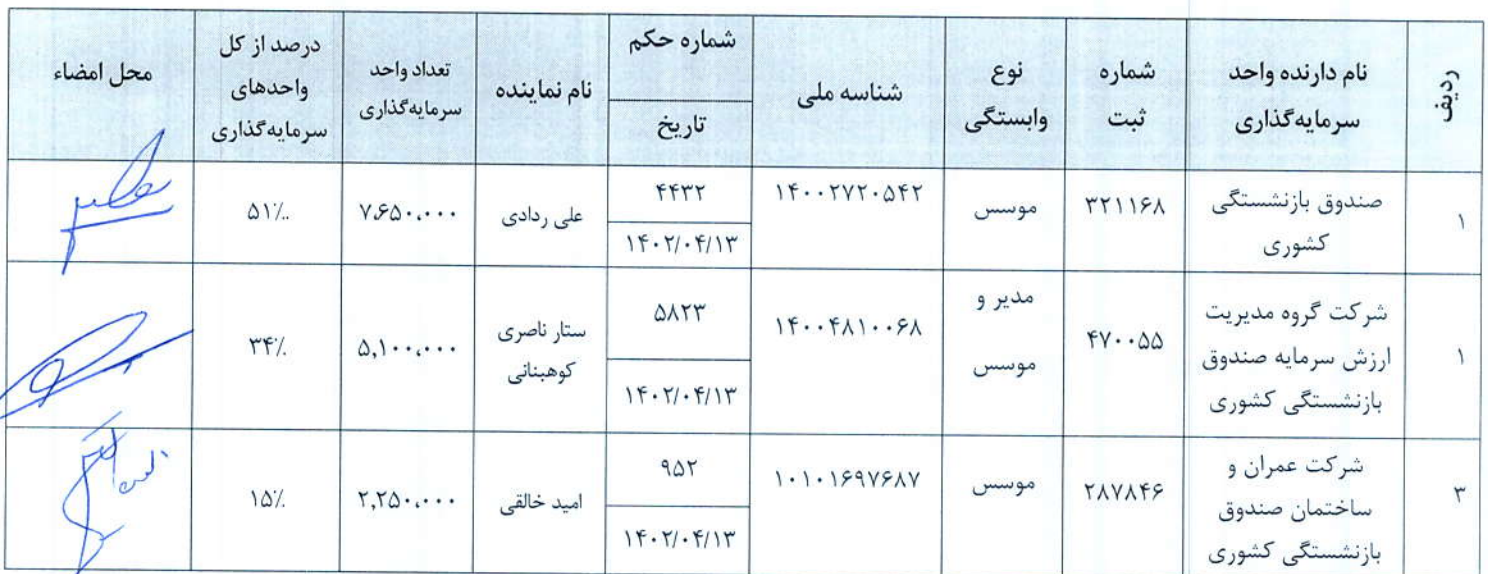 ردیف
نام دارنده واحد
سرمایه‌گذاری
شماره
ثبت
نوع
وابستگی
شناسه ملی
شماره حکم
تاریخ
نام نماینده
تعداد واحد
سرمایه‌گذاری
درصد از کل
واحدهای
سرمایه‌گذاری
محل امضاء
۱
صندوق بازنشستگی
کشوری
۳۲۱۱۶۸
موسس
۱۴۰۰۲۷۲۰۵۴۲
۴۴۳۲
۱۴۰۲/۰۴/۱۳
علی ردادی
۷,۶۵۰,۰۰۰
۵۱٪
۱
شرکت گروه مدیریت
ارزش سرمایه صندوق
بازنشستگی کشوری
۴۷۰۰۵۵
مدیر و
موسس
۱۴۰۰۴۸۱۰۰۶۸
۵۸۲۳
۱۴۰۲/۰۴/۱۳
ستار ناصری
کوهبنانی
۵,۱۰۰,۰۰۰
۳۴٪
۳
شرکت عمران و
ساختمان صندوق
بازنشستگی کشوری
۲۸۷۸۴۶
موسس
۱۰۱۰۱۶۹۷۶۸۷
۹۵۲
۱۴۰۲/۰۴/۱۳
امید خالقی
۲,۲۵۰,۰۰۰
۱۵٪